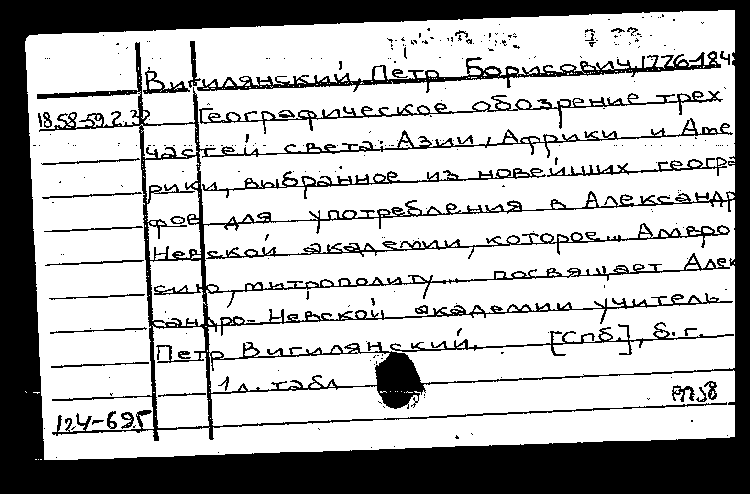 Вигилянский, Петр Борисович, 1776-184
18.58-59.2.32 Географическое обозрение трех
частей света: Азии, Африки и Аме
рики, выбранное из новейших геогра
фов для употребления в Александр
Невской академии, которое... Амвро
сию, митрополиту... посвящает Алек
сандро-Невской академии учитель
Петр Вигилянский. [Спб.], б. г.
1 л. табл
124-695